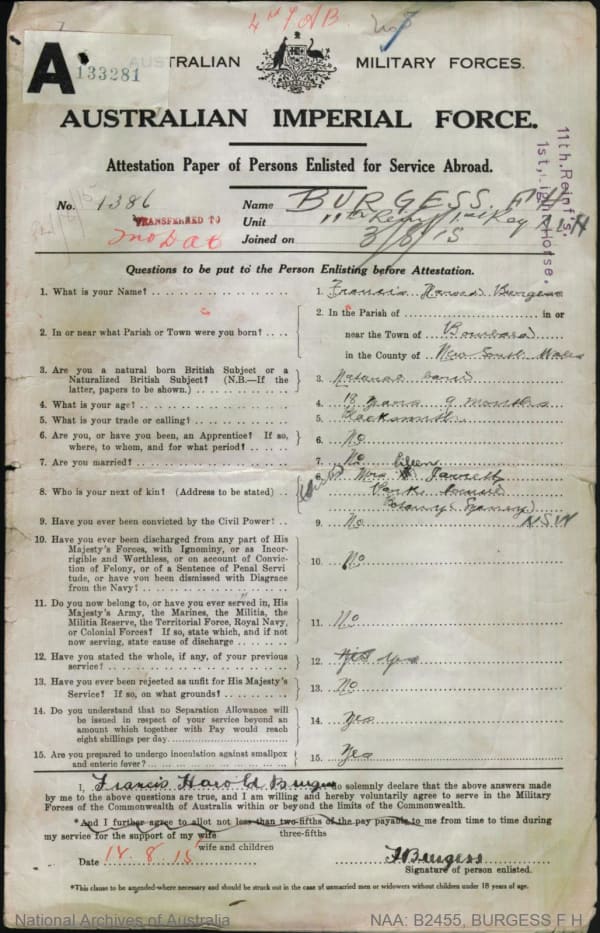 4th L of B.
A 133281
AUSTRALIAN MILITARY FORCES.
AUSTRALIAN IMPERIAL FORCE.
Attestation Paper of Persons Enlisted for Service Abroad.
11th. Reinfts.
1st, Light Horse.
No. 1386 Name BURGESS. F H
TRANSFERRED TO Unit 11th Reinf 1st Reg ALH
Joined on 3/8/15
Questions to be put to the Person Enlisting before Attestation.
1. What is your Name? 1. Francis Harold Burgess
2. In or near what Parish or Town were you born? 2. In the Parish of in or
near the Town of Bombala
in the County of New South Wales
3. Are you a natural born British Subject or a
Naturalized British Subject? (N.B.—If the
latter, papers to be shown.) 3. Natural born
4. What is your age? 4. 18 years 9 months
5. What is your trade or calling? 5. Blacksmith
6. Are you, or have you been, an Apprentice? If so,
where, to whom, and for what period? 6. No
7. Are you married? 7. No
8. Who is your next of kin? (Address to be stated) 8. Mrs Jarrett
Botany Sydney) NSW
9. Have you ever been convicted by the Civil Power? 9. No
10. Have you ever been discharged from any part of His
Majesty's Forces, with Ignominy, or as Incor-
rigible and Worthless, or on account of Convic-
tion of Felony, or of a Sentence of Penal Servi
tude, or have you been dismissed with Disgrace
from the Navy? 10. No
11. Do you now belong to, or have you ever served in, His
Majesty's Army, the Marines, the Militia, the
Militia Reserve, the Territorial Force, Royal Navy,
or Colonial Forces? If so, state which, and if not
now serving, state cause of discharge 11. No
12. Have you stated the whole, if any, of your previous
service? 12. Yes Yes
13. Have you ever been rejected as unfit for His Majesty's
Service? If so, on what grounds? 13. No
14. Do you understand that no Separation Allowance will
be issued in respect of your service beyond an
amount which together with Pay would reach
eight shillings per day 14. Yes
15. Are you prepared to undergo inoculation against smallpox
and enteric fever? 15. Yes
I, Francis Harold Burgess do solemnly declare that the above answers made
by me to the above questions are true, and I am willing and hereby voluntarily agree to serve in the Military
Forces of the Commonwealth of Australia within or beyond the limits of the Commonwealth.
*And I further agree to allot not less than two-fifths of the pay payable to me from time to time during
three-fifths
my service for the support of my wife
wife and children
Date 14.8.15 F Burgess
Signature of person enlisted.
*This clause to be amended where necessary and should be struck out in the case of unmarried men or widowers without children under 18 years of age.
National Archives of Australia NAA: B2455, BURGESS F H